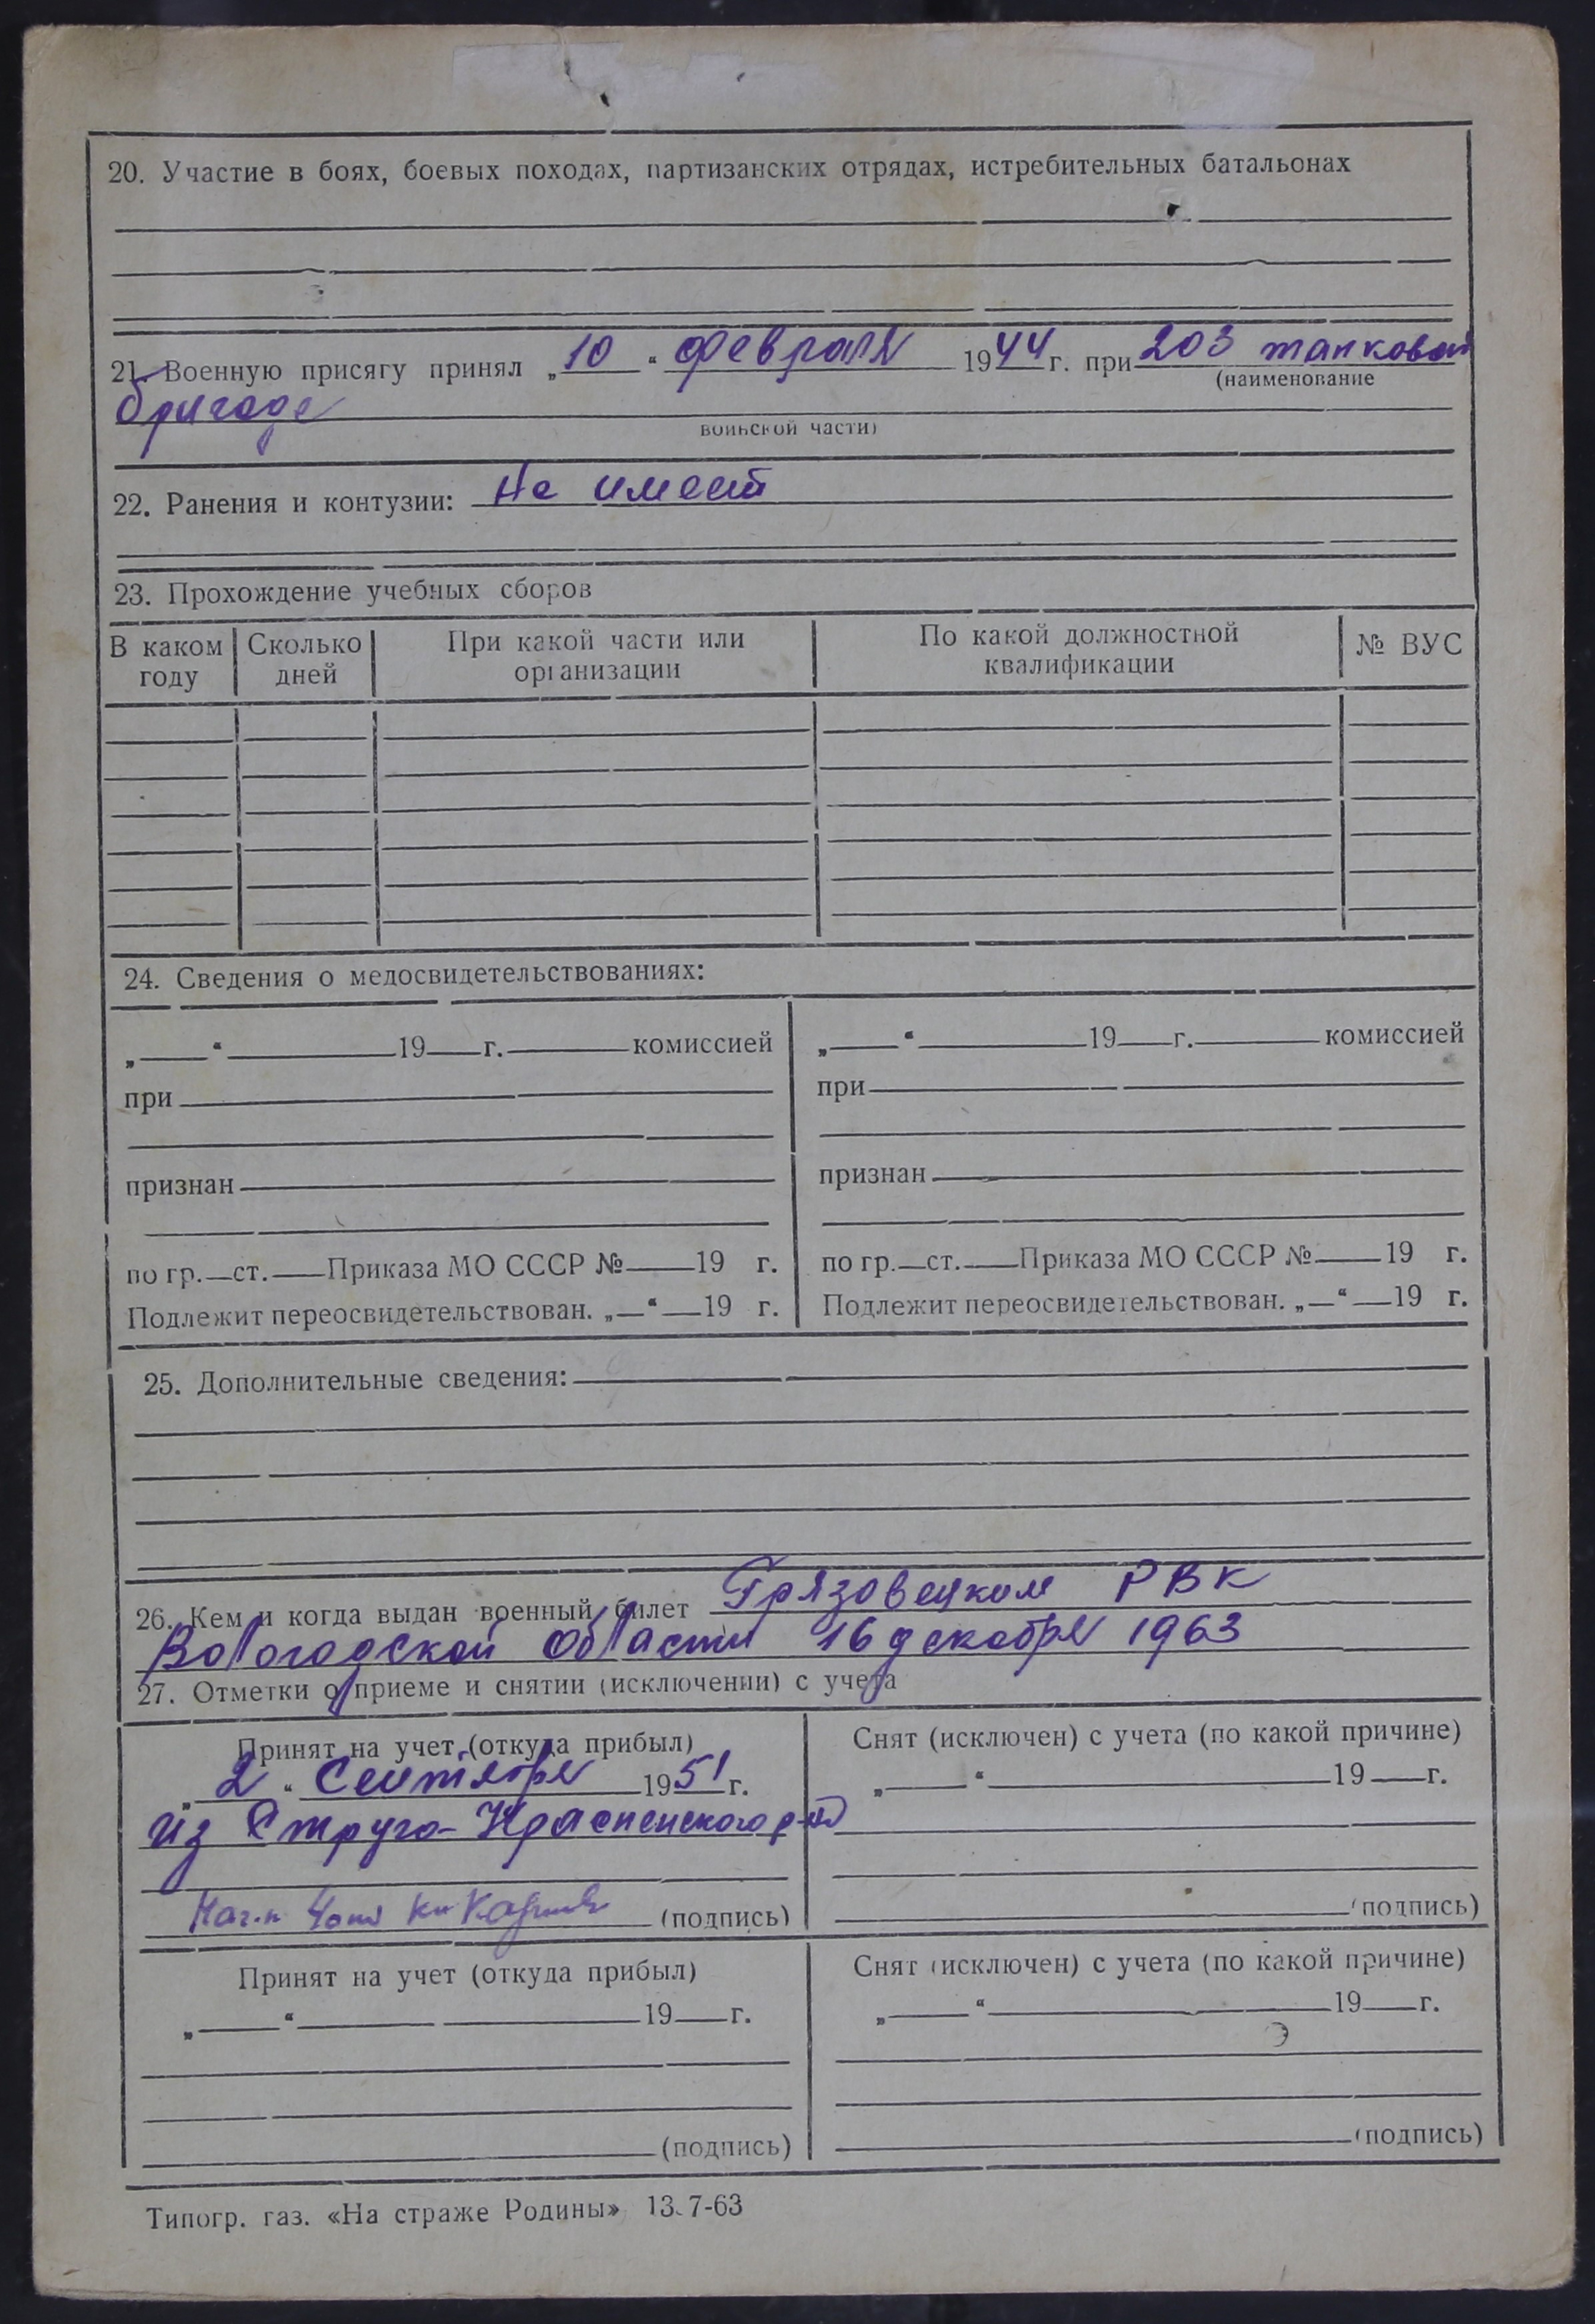 20. Участие в боях, боевых походах, партизанских отрядах, истребительных батальонах
21. Военную присягу принял „10“ февраля 1944 г. при 203 танковой
(наименование
бригаде
воинской части)
22. Ранения и контузии: Не имеет
23. Прохождение учебных сборов
В каком году Сколько дней При какой части или организации По какой должностной квалификации № ВУС
24. Сведения о медосвидетельствованиях:
„ “ 19 г. комиссией
при
признан
по гр. ст. Приказа МО СССР № 19 г.
Подлежит переосвидетельствован. „ “ 19 г.
„ “ 19 г. комиссией
при
признан
по гр. ст. Приказа МО СССР № 19 г.
Подлежит переосвидетельствован. „ “ 19 г.
25. Дополнительные сведения:
26. Кем и когда выдан военный билет Грязовецким РВК
Вологодской области 16 декабря 1963
27. Отметки о приеме и снятии (исключении) с учета
Принят на учет (откуда прибыл)
„2“ Сентября 1951 г.
из Струго-Красненского р-на
(подпись)
Снят (исключен) с учета (по какой причине)
„ “ 19 г.
(подпись)
Принят на учет (откуда прибыл)
„ “ 19 г.
(подпись)
Снят (исключен) с учета (по какой причине)
„ “ 19 г.
(подпись)
Типогр. газ. «На страже Родины» 13.7-63